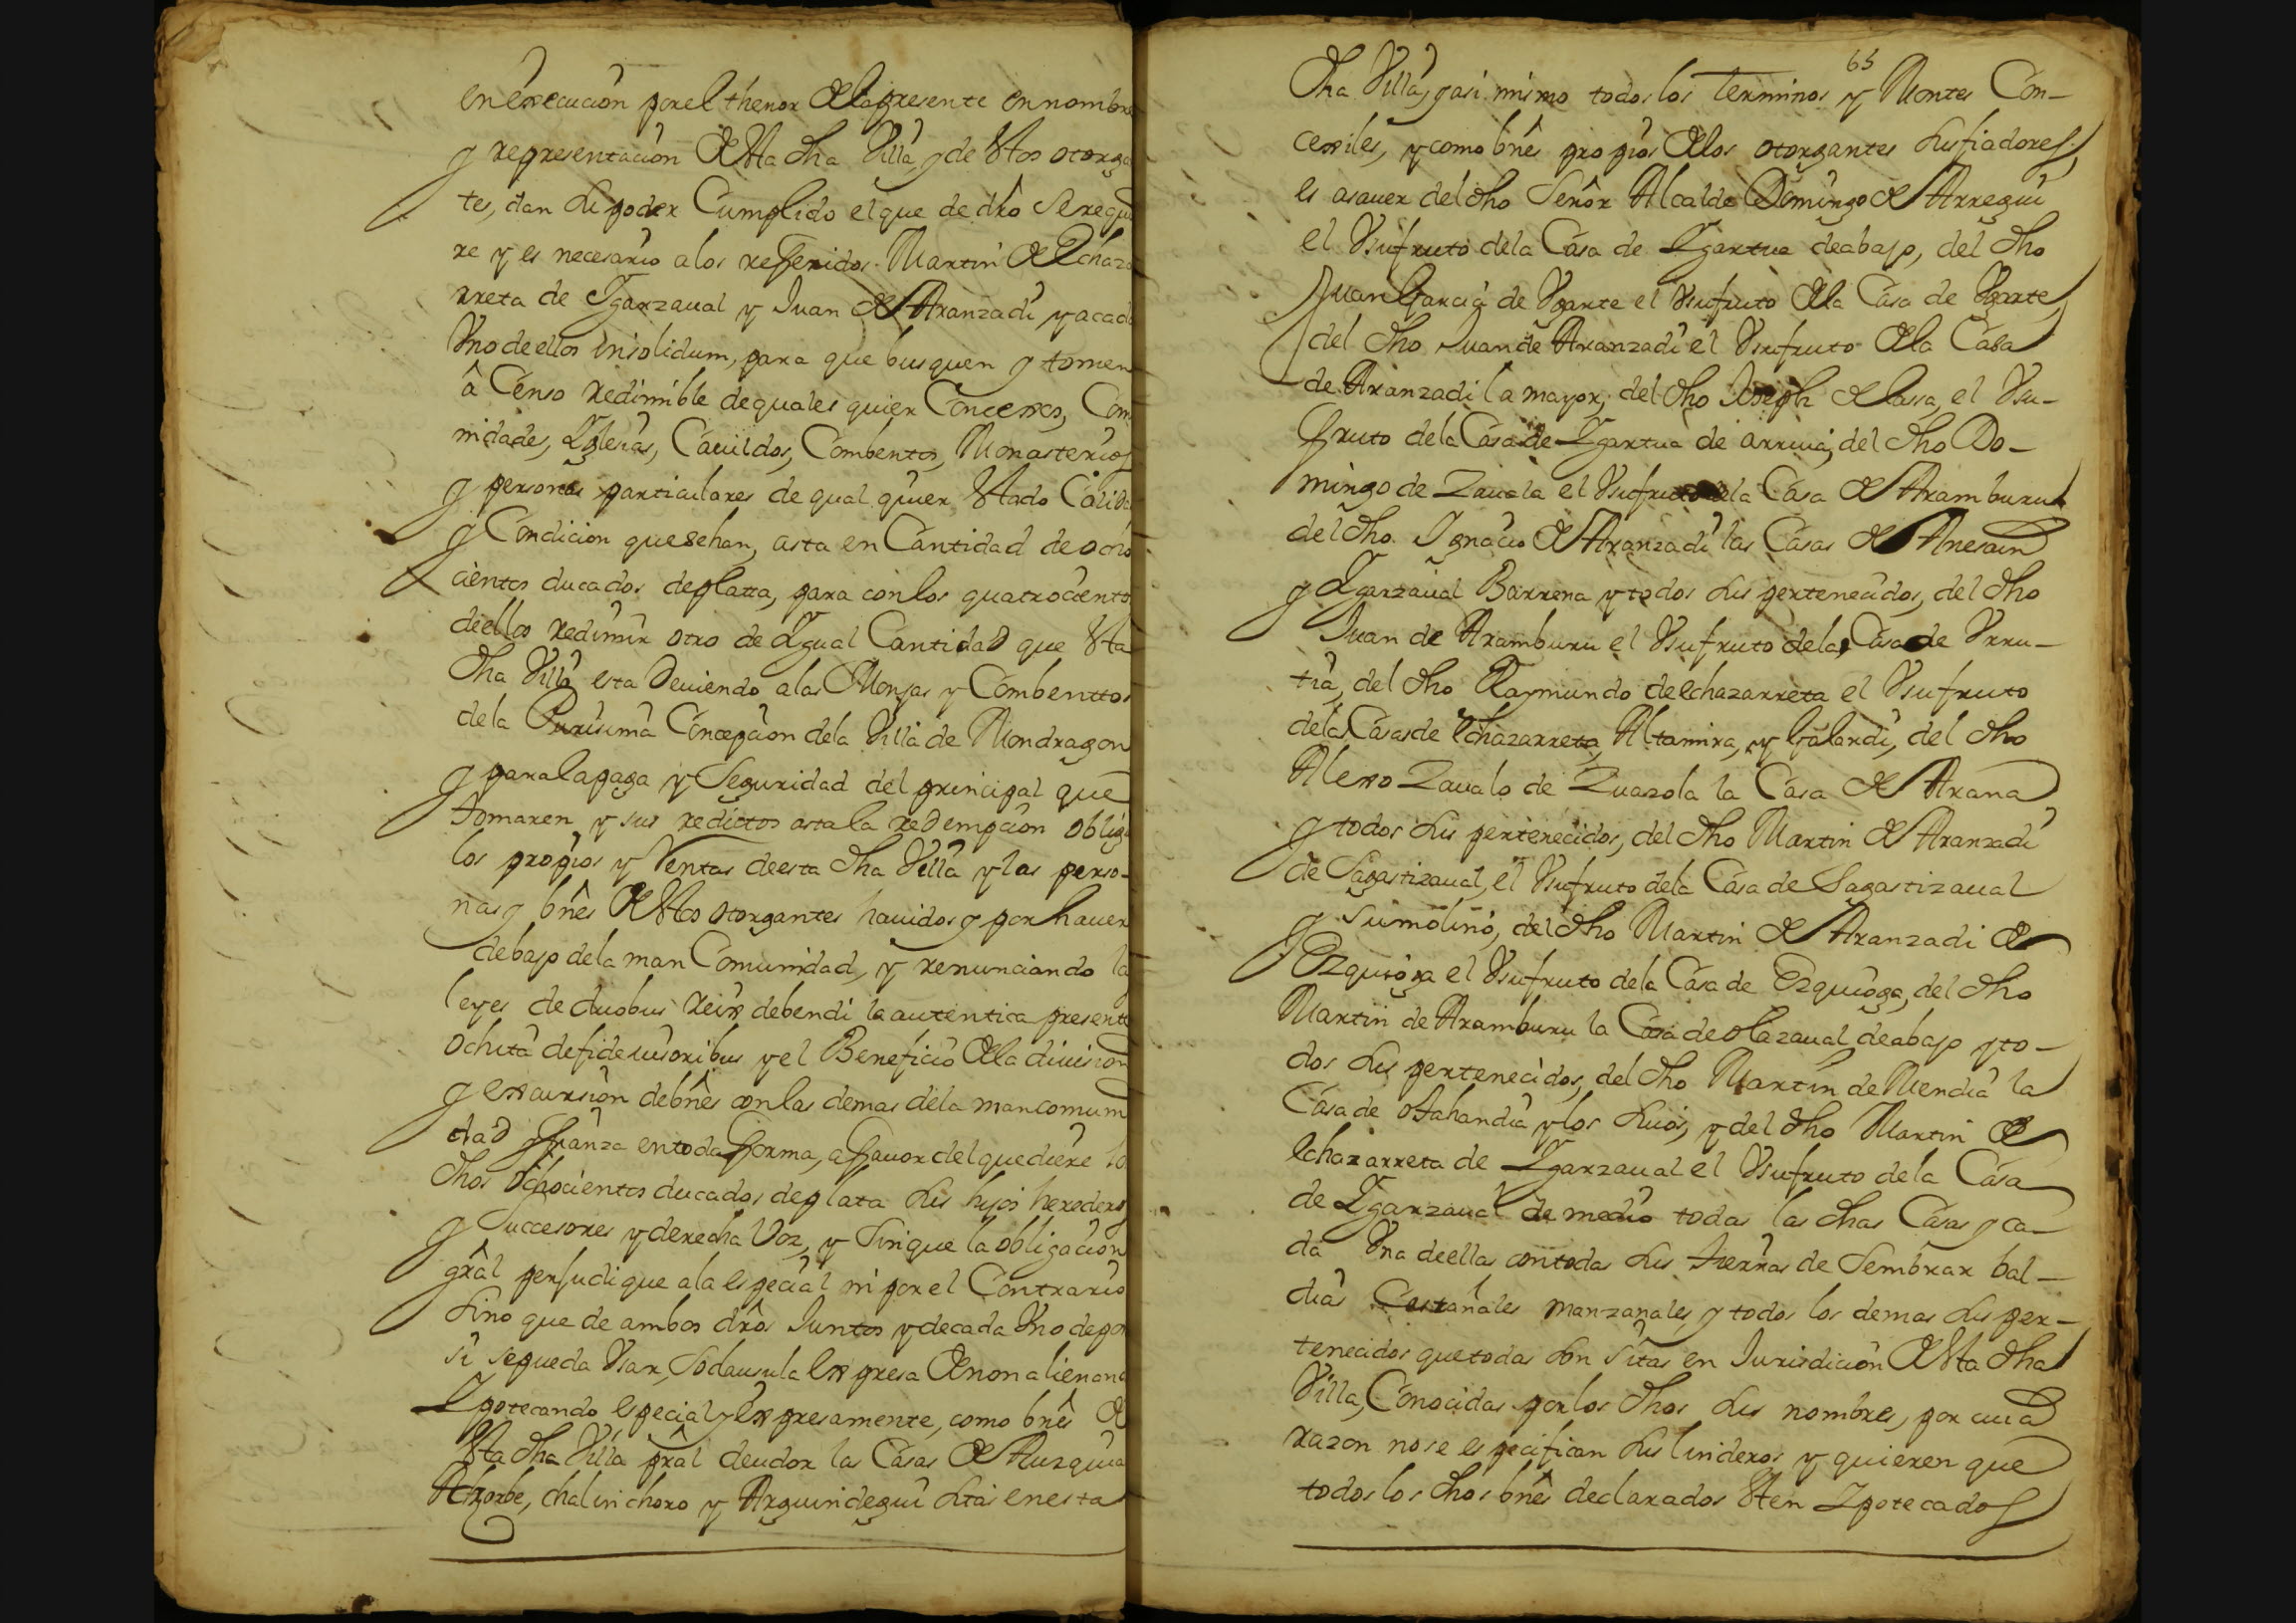 en execucion por el thenor de la presente en nombre
y representacion de esta dha Villa, y de estos otorga
tes, dan su poder Cumplido el que de dro se requie
re y es necesario a los referidos Martin de Echaza
rreta de Ygarzaual y Juan de Aranzadi y a cada
Vno de ellos insolidum, para que busquen y tomen
â Censo redimible de quales quier Concexos, Com
nidades, Yglesias, Cauildos, Combentos, Monasterios
y personas particulares de qual quier estado Calida
y Condicion que sehan, asta en Cantidad de ocho
cientos ducados de platta, para con los quatrocientos
de ellos redimir otro de Ygual Cantidad que esta
dha Villa esta Deuiendo a las Monjas y Combenttos
de la Purisima Concepcion de la Villa de Mondragon
y para la paga y Seguridad del principal que
tomaren y sus redictos asta la redempcion obliga
los propios y Rentas de esta dha Villa y las perso-
nas y bnês de estos otorgantes hauidos y por hauer
debajo de la man Comunidad, y renunciando la
leyes de duobus reix debendi la autentica presente
ochita de fideiusoribus y el Beneficio de la diuision
y excursion de bnês con las demas de la mancomuni
dad y fianza en toda forma, a fauor del que diere lo
dhos ochocientos ducados de plata sus hijos herederos
y Successores y derecha Voz, y sin que la obligacion
grâl perjudique a la especial ni por el Contrario
sino que de ambos drôs Juntos y de cada Vno de por
si se pueda Vsar, so clausula expresa de non alienand
Ypotecando especial y expresamente, como bnês de
esta dha Villa prâl deudor las Casas de Auzquia
Achorbe, chalinchoro y Arguindegui sitas en esta
65
dha Villa, y asi mismo todos los terminos y Montes Con-
cexiles, y como bnês propios de los otorgantes sus fiadores
es asauer del dho Señor Alcalde Domingo de Arregui
el Vsufruto de la Casa de Ygartua de abajo, del dho
Juan Garcia de Vgarte el Vsufruto de la Casa de Vgarte,
del dho Juan de Aranzadi el Vsufruto de la Casa
de Aranzadi la mayor, del dho Joseph de lassa, el Vsu-
fruto de la Casa de Ygartua de arriua, del dho Do-
mingo de Zauala el Vsufruto de la Casa de Aramburu
del dho Ygnacio de Aranzadi las Casas de Anesain
y Ygarzaual Barrena y todos sus pertenecidos, del dho
Juan de Aramburu el Vsufruto de la Casa de Vrru-
tia, del dho Raymundo de echazarreta el Vsufruto
de las Casas de echazarreta, Altamira, y Galardi, del dho
Alexo Zaualo de Zuazola la Casa de Arana
y todos sus pertenecidos, del dho Martin de Aranzadi
de Sagastizaual, el Vsufruto de la Casa de Sagastizaual
y su molino, del dho Martin de Aranzadi de
Ezquioga el Vsufruto de la Casa de Ezquioga, del dho
Martin de Aramburu la Casa de olazaual de abajo y to-
dos sus pertenecidos, del dho Martin de Mendia la
Casa de otahandia y los suios, y del dho Martin de
echazarreta de Ygarzaual el Vsufruto de la Casa
de Ygarzaual de medio todas las dhas Casas y ca-
da Vna de ellas con todas sus tierras de Sembrar bal-
dias Castañales manzanales, y todos los demas sus per-
tenecidos que todas son sitas en Jurisdicion de esta dha
Villa, Conocidas por los dhos sus nombres, por cuia
razon no se especifican sus linderos y quieren que
todos los dhos bnês declarados esten Ypotecados